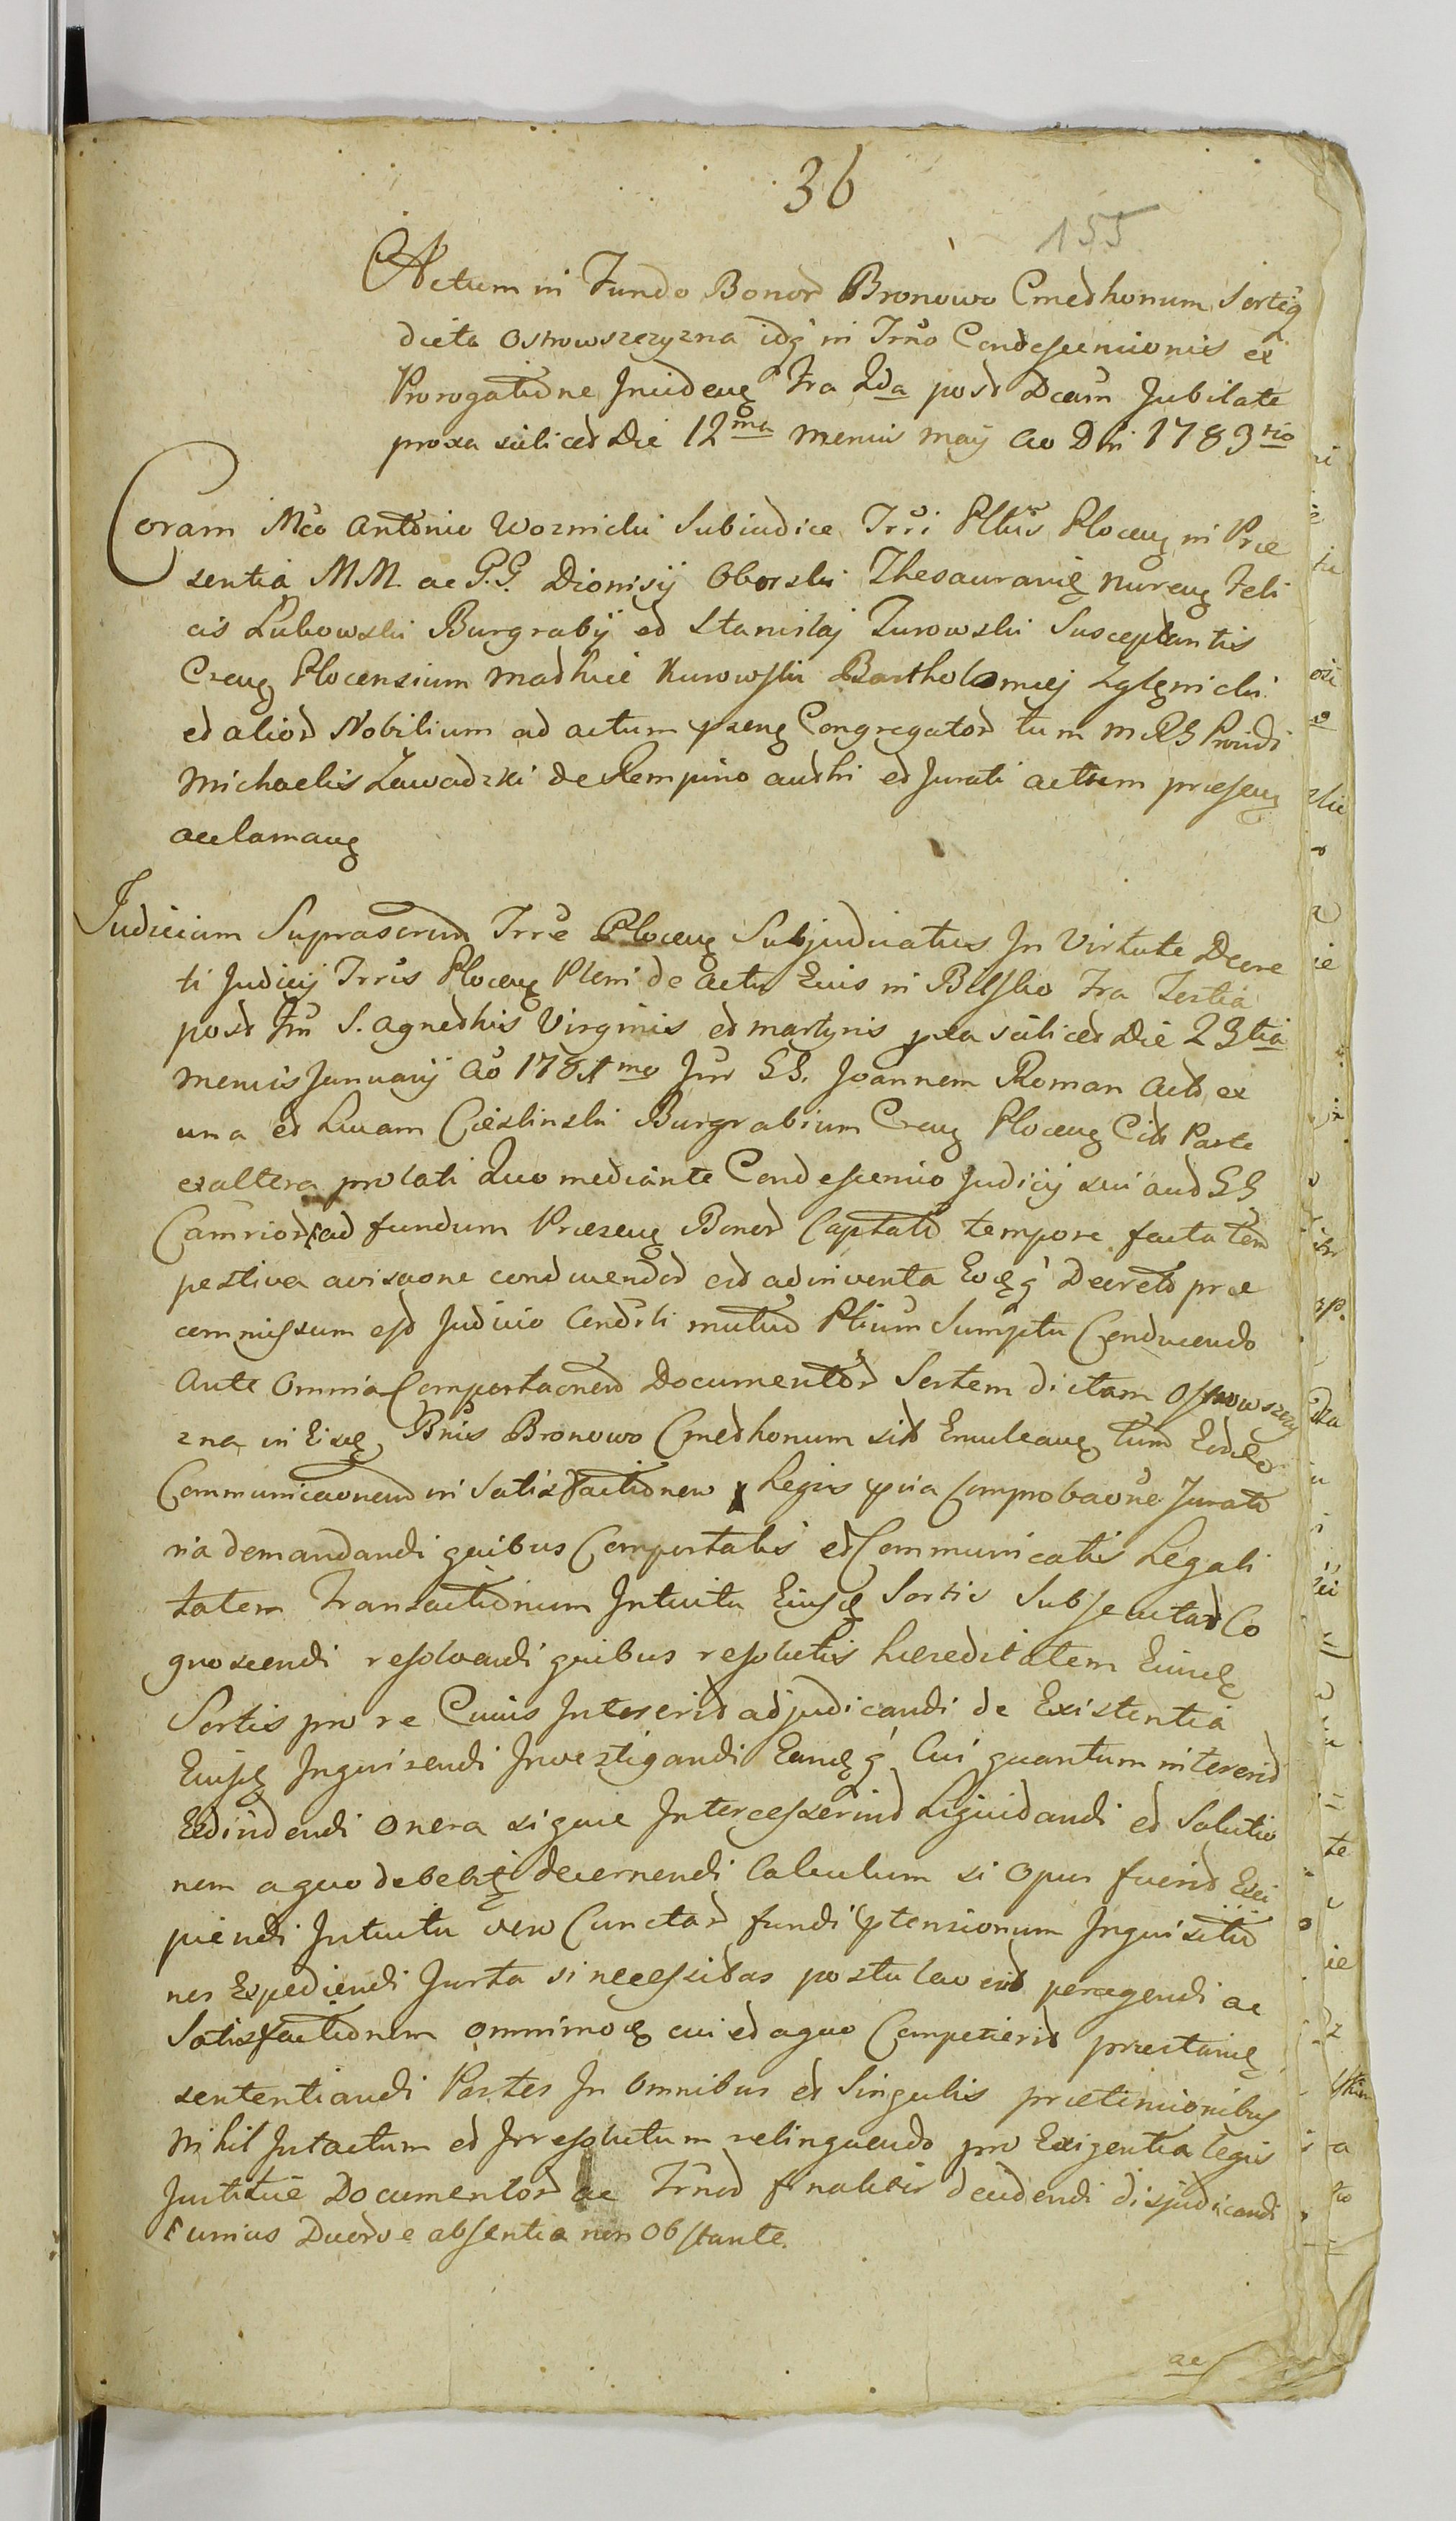 36
155
Actum in Fundo Bonor Bronowo Cmethonum Sortiq
dicta Ostrowszczyzna idq in Trno Condescensionis ex
Prorogatione Incidenę Fra 2da post Dcam Jubilate
proxa scilicet Die 12ma mensis maij Ao Dni 1783tio
Coram Mco Antonio Woznicki Subiudice Trri Pltus Plocenę in Præ
sentia M.M. ac G.G. Dionisÿ Oborski Thesaurarię Nurenę Feli
cis Lubowski Burgrabÿ et Stanislaj Zurowski Susceptantis
Crenę Plocensium Mathiæ Kurowski Bartholomæj Zglenicki
et alior Nobilium ad actum psenę Congregator tum Providi
Michaelis Zawadzki de Rempino authi et Jurati actum præsenę
acclamanę
Judicium Suprascrum Trre Plocenę Subjudicatus In Virtute Decre
ti Judicij Trris Plocenę Pleni de Actu Euis in Bielsko Fra Tertia
post Fm S. Agnethis Virginis et martyris pxa scilicet Die 23tia
mensis Januarij Ao 1781mo Inr GG. Joannem Roman Actt ex
una et Lucam Cieslinski Burgrabium Crenę Plocenę Citt Parte
ex altera prolati Quo mediante Condescensio Judicij sui aut GG
Camrior ad fundum Præsenę Bonor Captato tempore facta tem
pestiva avisaone conducendor est adinventa Eoęq Decreto præ
commissum est Judicio Condsli mutuo Ptium Sumptu Conducendo
Ante Omnia Comportaonem Documentor Sortem dictam Ostrowszczy
zna in Eisdę Bnis Bronowo Cmethonum sit Emuleanę tum Eordę
Communicaonem in Satisfactionem Legis pvia Comprobaone Jurato
ria demandandi quibus Comportatis et Communicatis Legali
tatem Transactionum Intuitu Eiusdę Sortis Subsecutar Co
gnoscendi resolvendi quibus resolutis hæreditatem Eiusdę
Sortis pro re Cuius Intererit adjudicandi de Existentia
Eiusdę Inquirendi Investigandi Eamdęq Cui quantum intererit
Edindendi Onera si quæ Intercesserint Liquidandi et Solutio
nem a quo debebit decernendi Calculum si Opus fuerit Exci
piendi Intuitu vero Cunctar fundi ptensionum Inquisitio
nes Expediendi Jurta si necessitas postulaverit peragendi ac
Satisfactionem omnimodę cui et a quo Competierit præstandę
sententiandi Partes In Omnibus et Singulis prætensionibus
Nihil Intactum et Irresolutum relinquendo pro Exigentia legis
Justitiæ Documentor ac Trnor finaliter decidendi disjudicandi
Cunius Duorve absentia non Obstante.
ac